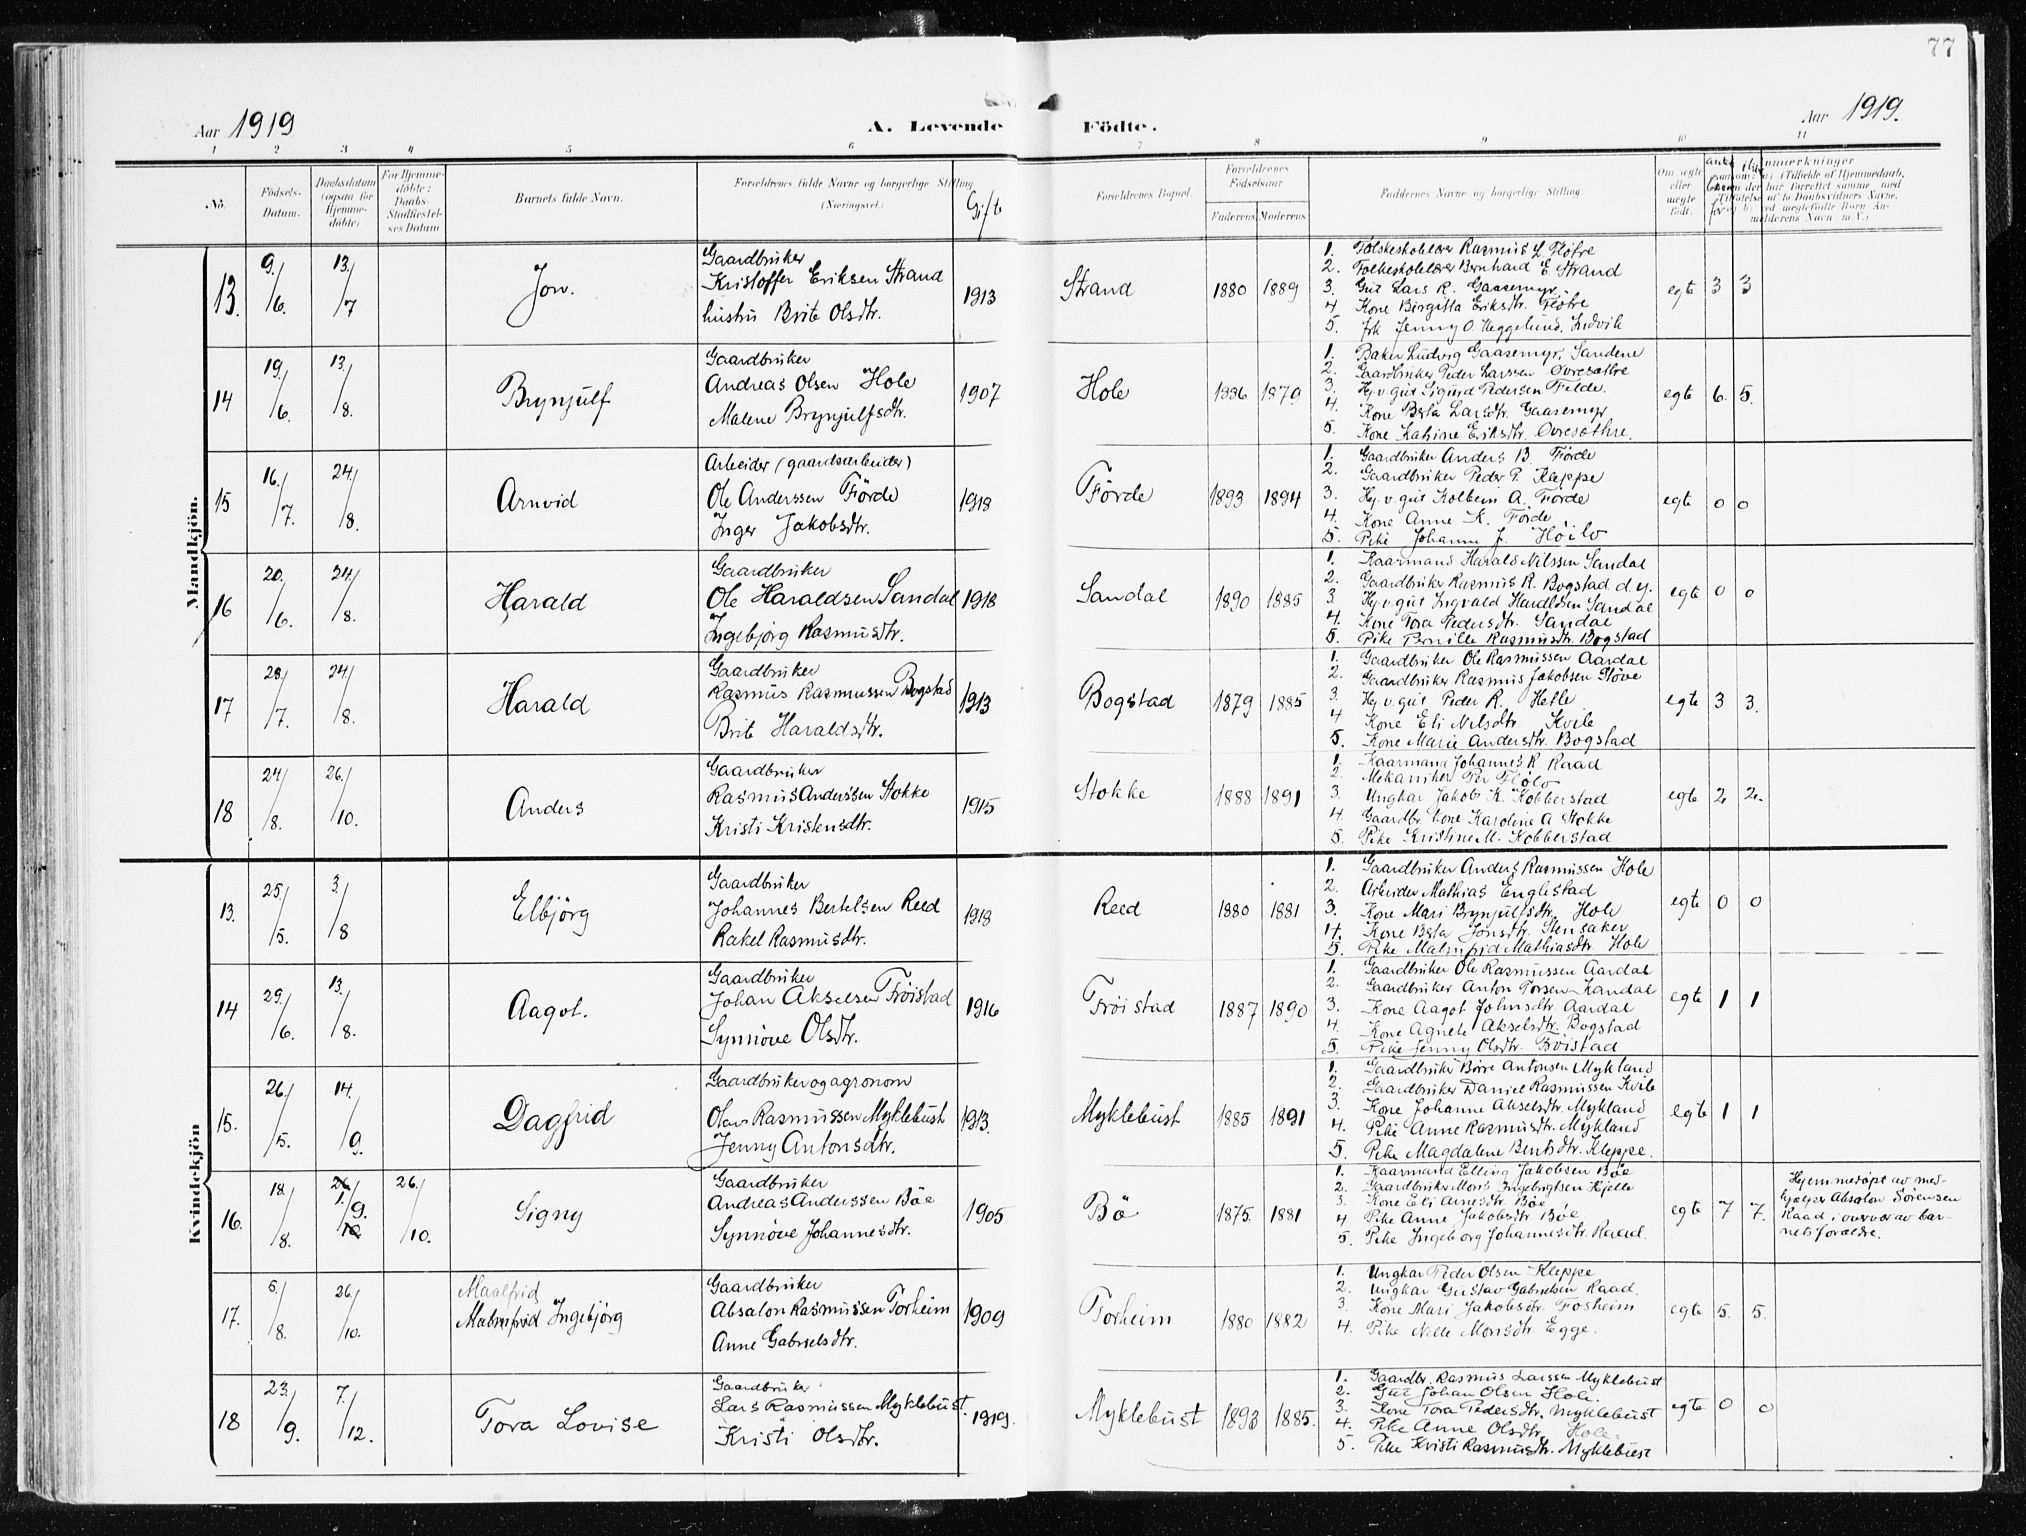 77
Aar 1919
A. Levende Födte.
Aar 1919.
1 2 3 4 5 6 7 8 9 10 11
No.
Födsels-Datum.
Daabsdatum (ogsaa for Hjemmedöbte)
For Hjemmedöbte: Daabs-Stadfæstelses Datum
Barnets fulde Navn.
Forældrenes fulde Navne og borgerlige Stilling (Næringsvei.)
Gift
Forældrenes Bopæl.
Forældrenes Födselsaar.
Faderens. Moderens.
Faddernes Navne og borgerlige Stilling
Om ægte eller uægte födt.
Mandkjön.
13. 9./6. 13./7 Jon. Gaardbruker
Kristoffer Eriksen Strand
hustru Brite Olsdtr.
1913 Strand 1880 1889
1. Folkeskolelærer Rasmus L. Fløtre
2. Folkeskolelærer Bernhard E. Strand
3. Gut Lars R. Gaasemyr
4. Kone Birgitta Eriksdtr. Fløtre
5. Frk Jenny O. Heggelund, Indvik
egte 3 3
14 19./6. 13./8. Brynjulf Gaardbruker
Andreas Olsen Hole
Malene Brynjulfsdtr.
1907 Hole 1886 1879
1. Baker Ludvig Gaasemyr, Sandene
2. Gaardbruker Peder Larssen Øvresøthre
3. Hj.v. gut Sigurd Pedersen Felde.
4. Kone Berta Larsdtr. Gaasemyr
5. Kone Katrine Eriksdtr. Øvresøthre.
egte 6. 5.
15 16./7. 24./8. Arnvid Arbeider (gaardsarbeider)
Ole Anderssen Förde
Inger Jakobsdtr.
1918 Förde 1893 1894
1. Gaardbruker Anders B. Förde
2. Gaardbruker Peder P. Kleppe
3. Hj.v. gut Kolbein A. Förde
4. Kone Anne K. Förde
5. Pike Johanne J. Höilo
egte 0 0
16 20./6. 24./8. Harald Gaardbruker
Ole Haraldsen Sandal
Ingebjørg Rasmusdtr.
1918 Sandal 1890 1885
1. Kaarmand Harald Nilssen Sandal
2. Gaardbruker Rasmus R. Bogstad d.y.
3. Hj.v. gut Ingvald Haraldsen Sandal
4. Kone Tora Pedersdtr. Sandal
5. Pike Pernille Rasmusdtr. Bogstad
egte 0 0
17 28./7. 24./8. Harald Gaardbruker
Rasmus Rasmussen Bogstad
Brite Haraldsdtr.
1913 Bogstad 1879 1885
1. Gaardbruker Ole Rasmussen Aardal
2. Gaardbruker Rasmus Jakobsen Støve
3. Hj.v. gut Peder R. Hetle
4 Kone Eli Nilsdtr. Kvile
5. Kone Marie Andersdtr. Bogstad
egte 3 3.
18 24/8. 26./10. Anders Gaardbruker
Rasmus Anderssen Stokke
Kristi Kristensdtr.
1915 Stokke 1888 1891
1. Kaarmand Johannes R. Raad
2. Mekaniker Per Flølo
3. Ungkar Jakob K. Kobberstad
4. Gaardbr. kone Karoline A Stokke
5. Pike Kristine M. Kobberstad
egte 2 2.
Kvindekjön
13. 25./5. 3./8 Elbjörg Gaardbruker
Johannes Bertelsen Reed
Rakel Rasmusdtr.
1918 Reed 1880 1881
1. Gaardbruker Anders Rasmussen Hole
2. Arbeider Mathias Englestad
3. Kone Mari Brynjulfsdtr. Hole
4. Kone Berta Jonsdtr. Stensaker
5. Pike Malmfrid Mathiasdtr. Hole
egte 0 0
14 29./6. 13./8. Aagot. Gaardbruker
Johan Akselsen Tröistad
Synnöve Olsdtr.
1916 Tröistad 1887 1890
1. Gaardbruker Ole Rasmussen Aardal
2. Gaardbruker Anton Torsen Sandal
3. Kone Aagot Johnsdtr. Aardal
4. Kone Agnete Akselsdtr. Bogstad
5. Pike Jenny Olsdtr. Tröistad
egte 1 1
15. 26./5. 14./9. Dagfrid Gaardbruker og agronom
Olav Rasmussen Myklebust
Jenny Antonsdtr.
1913. Myklebust 1885 1891
1. Gaardbruker Börre Antonsen Mykland
2. Gaardbruker Daniel Rasmussen Kvile
3. Kone Johanne Akselsdtr. Mykland
4. Pike Anne Rasmusdtr. Mykland
5. Pike Magdalene Bentsdtr. Kleppe.
egte 1 1
16. 18./8. 1./9. 26./10. Signy Gaardbruker
Andreas Anderssen Böe
Synnöve Johannesdtr.
1905 Bö 1875. 1881
1. Kaarmand Elling Jakobsen Böe
2. Gaardbruker Mons Ingebrigtsen Hjelle
3. Kone Eli Arnesdtr. Böe
4 Pike Anne Jakobsdtr Böe.
5. Pike Ingeborg Johannesdtr. Raad.
egte 7 7.
Hjemmedøpt av med-
hjælper Absalon Sørensen
Raad i overvær av bar-
nets forældre.
17. 6./8. 26./10. Maalfrid
Malmfrid Ingebjörg
Gaardbruker
Absalon Rasmussen Torheim
Anne Gabrielsdtr.
1909 Torheim 1880 1882
1. Ungkar Peder Olsen Kleppe
2. Ungkar Gustav Gabrielsen Raad.
3. Kone Mari Jakobsdtr. Fosheim
4. Pike Nelle Monsdtr. Egge.
egte 5. 5.
18 23./9. 7./12. Tora Lovise Gaardbruker
Lars Rasmussen Myklebust.
Kristi Olsdtr.
1919. Myklebust 1893 1885.
1. Gaardbr. Rasmus Larssen Myklebust
2. Gut Johan Olsen Hole
3. Kone Tora Pedersdtr. Myklebust
4. Pike Anne Olsdtr. Hole
5. Pike Kristi Rasmusdtr. Myklebust
egte 0 0